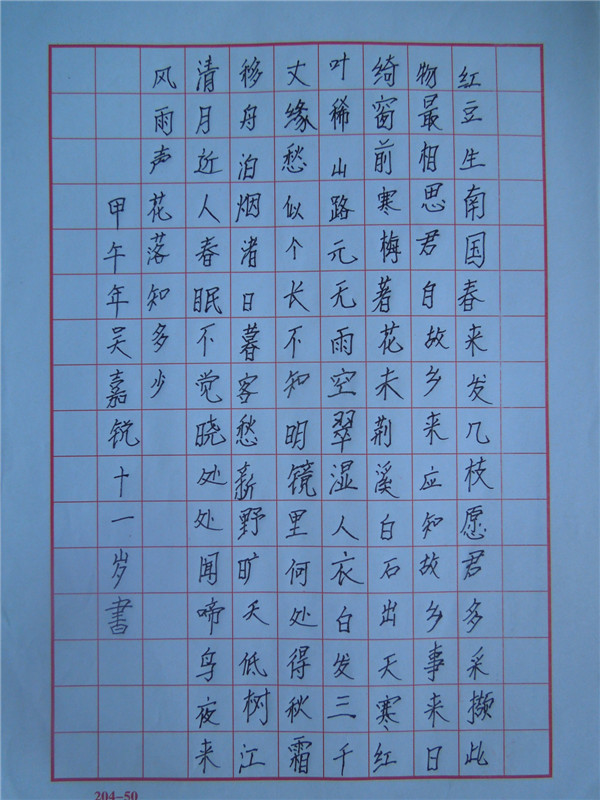 红豆生南国春来发几枝愿君多采撷此
物最相思君自故乡来应知故乡事来日
绮窗前寒梅著花未荆溪白石出天寒红
叶稀山路元无雨空翠湿人衣白发三千
丈缘愁似个长不知明镜里何处得秋霜
移舟泊烟渚日暮客愁新野旷天低树江
清月近人春眠不觉晓处处闻啼鸟夜来
风雨声花落知多少
甲午年吴嘉锐十一岁书
204-50